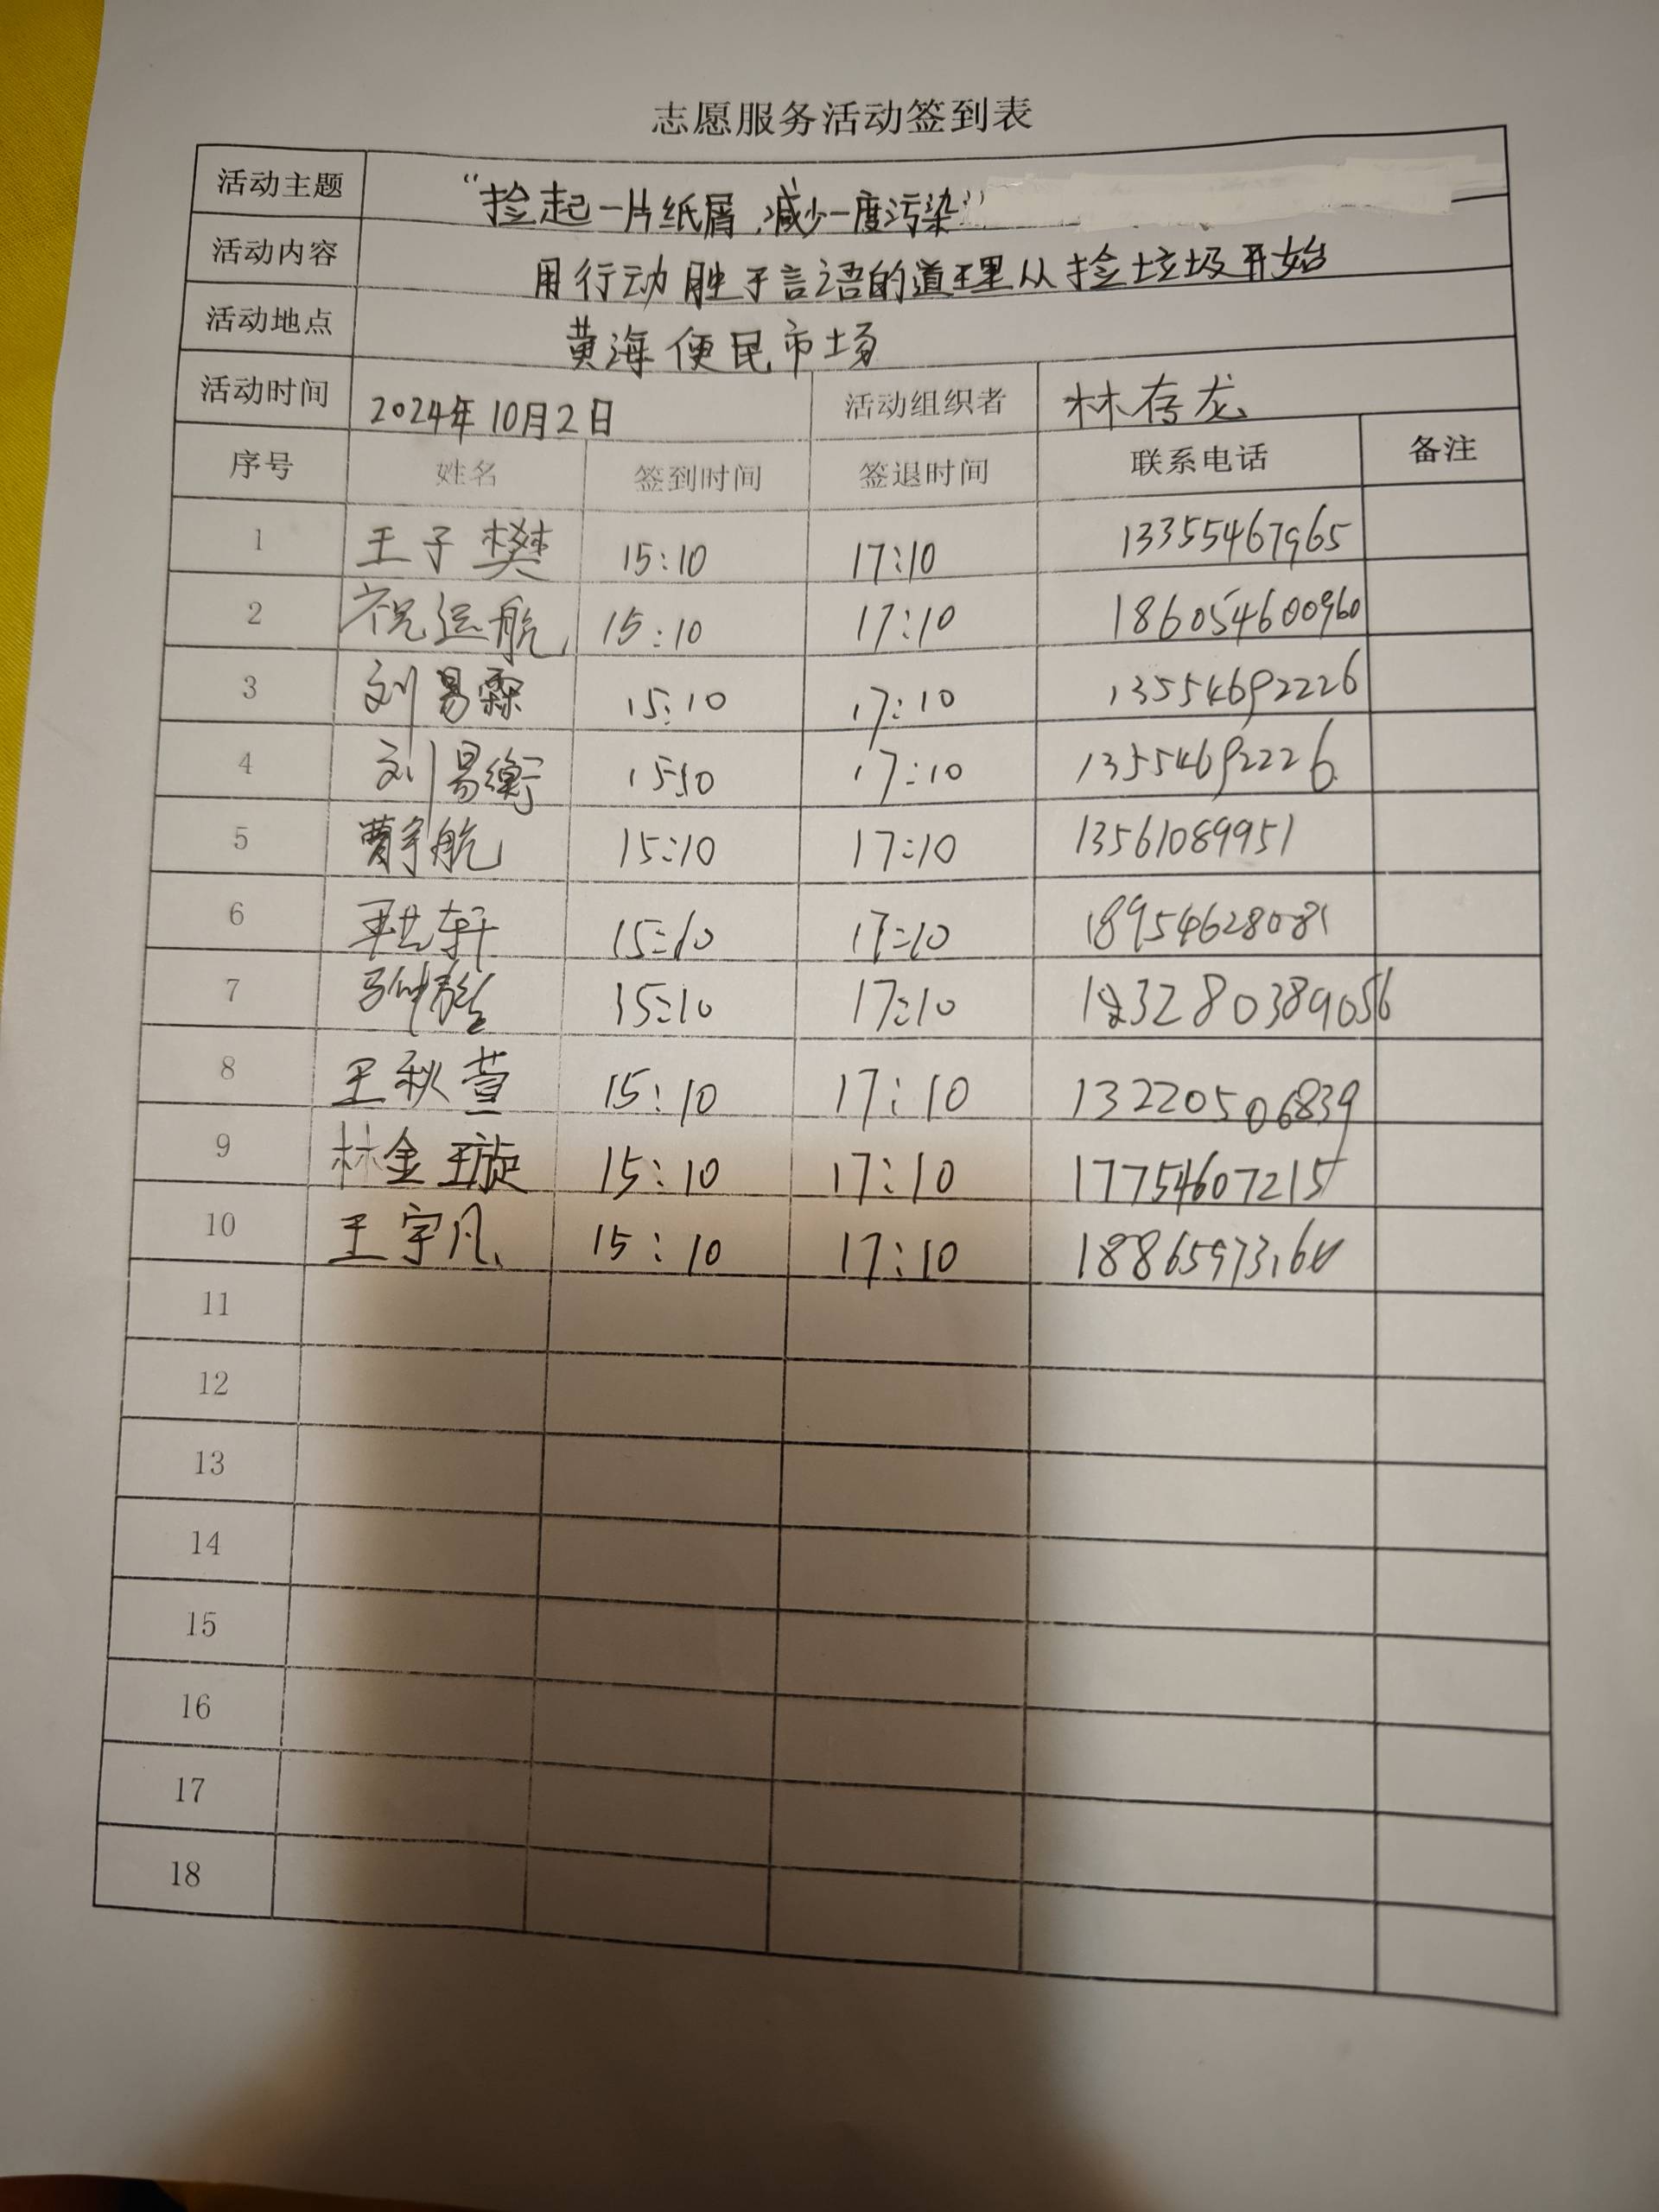 志愿服务活动签到表
活动主题 “捡起一片纸屑,减少一度污染”
活动内容 用行动胜于言语的道理从捡垃圾开始
活动地点 黄海便民市场
活动时间 2024年10月2日 活动组织者 林存龙
序号 姓名 签到时间 签退时间 联系电话 备注
1 王子樊 15:10 17:10 13355467965
2 祝运航 15:10 17:10 186054600960
3 刘易霖 15:10 17:10 13554692226
4 刘易衡 15:10 17:10 13554692226
5 曹宇航 15:10 17:10 13561089951
6 15:10 17:10 18954628081
7 15:10 17:10
8 王秋萱 15:10 17:10 13220506839
9 林金璇 15:10 17:10 17754607215
10 王宇凡 15:10 17:10
11
12
13
14
15
16
17
18